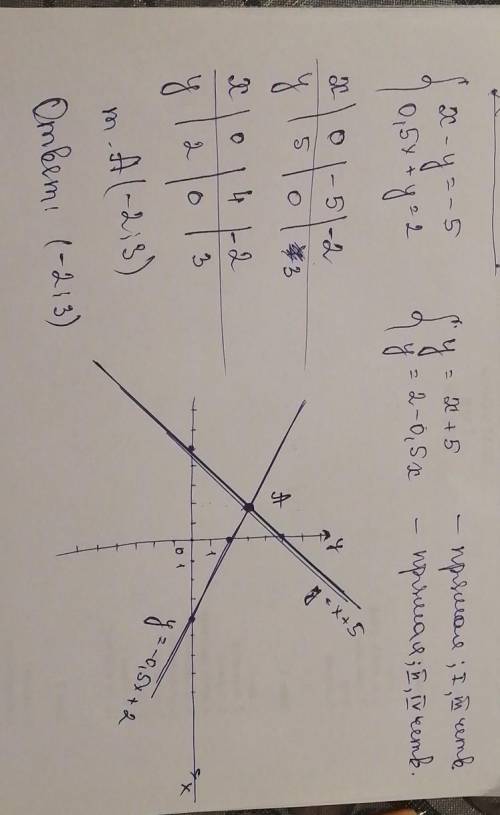 { x - y = -5
0,5x + y = 2
{ y = x + 5 — прямая; I, III четв.
y = 2 - 0,5x — прямая; II, IV четв.
x | 0 | -5 | -2
y | 5 | 0 | 3
x | 0 | 4 | -2
y | 2 | 0 | 3
т. A (-2; 3)
Ответ: (-2; 3)
y
y = x + 5
A
1
0 1
x
y = -0,5x + 2